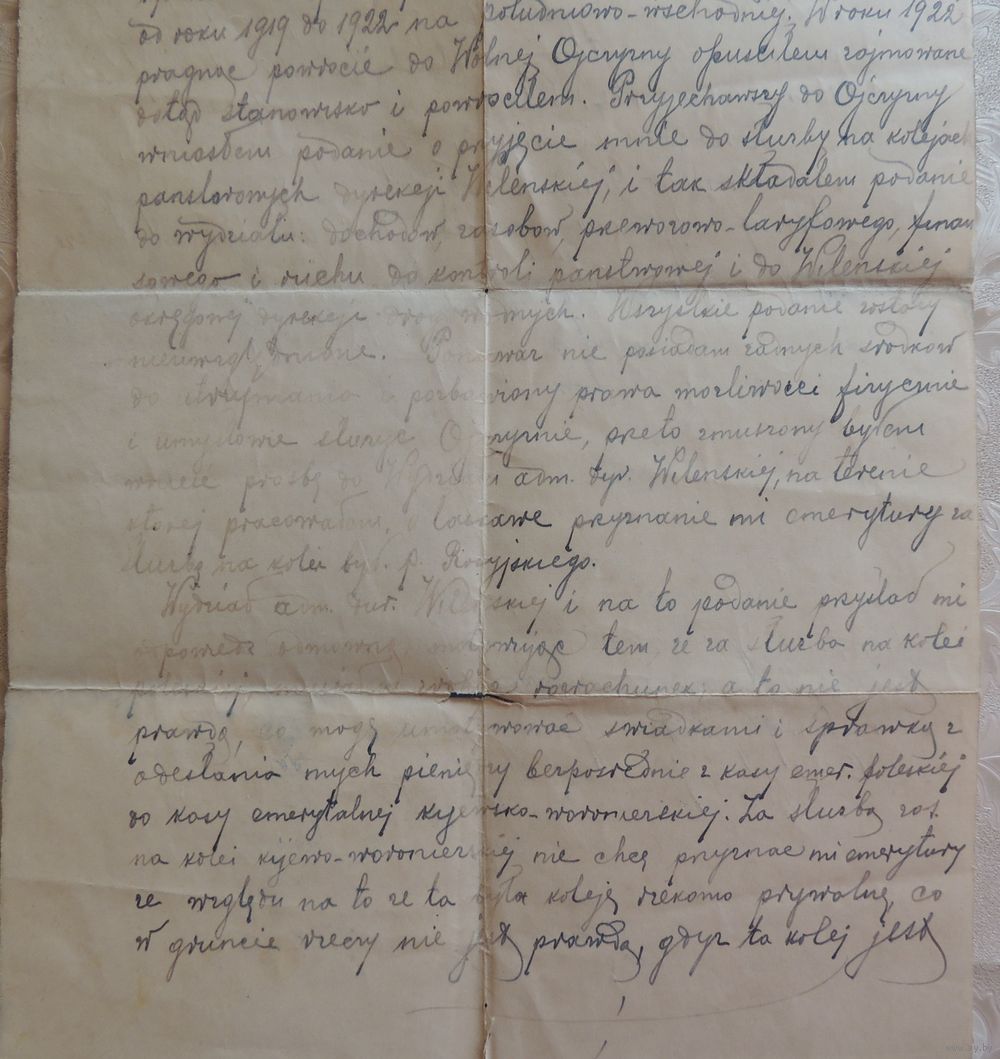 od roku 1919 do 1922 na południowo-wschodniej. W roku 1922
pragnąc powrócić do Wolnej Ojczyzny opuściłem zajmowane
dotąd stanowisko i powróciłem. Przyjechawszy do Ojczyzny
wniosłem podanie o przyjęcie mnie do służby na kolejach
państwowych dyrekcji Wileńskiej, i tak składałem podanie
do wydziału: dochodów, zasobów, przewozowo-taryfowego, finan
sowego i ruchu do kontroli państwowej i do Wileńskiej
okręgowej dyrekcji dróg wodnych. Wszystkie podanie zostały
nieuwzględnione. Ponieważ nie posiadam żadnych środków
do utrzymania i pozbawiony prawa możliwości fizycznie
i umysłowo służyć Ojczyźnie, przeto zmuszony byłem
wnieść prośbę do Wydziału adm. dyr. Wileńskiej, na terenie
której pracowałem, o łaskawe przyznanie mi emerytury za
służbę na kolei był. p. Rosyjskiego.
Wydział adm. dyr. Wileńskiej i na to podanie przysłał mi
odpowiedź odmowną motywując tem że za służbę na kolei
poleskiej rozrachunek, a to nie jest
prawdą, co mogę umotywować świadkami i sprawką z
odesłania mych pieniędzy bezpośrednio z kasy emer. poleskiej
do kasy emerytalnej kijewsko-woroneżskiej. Za służbę zaś
na kolei kijewo-woroneżskiej nie chcą przyznać mi emerytury
ze względu na to że ta była koleją rzekomo prywatną, co
w gruncie rzeczy nie jest prawdą, gdyż ta kolej jest
www.ay.by